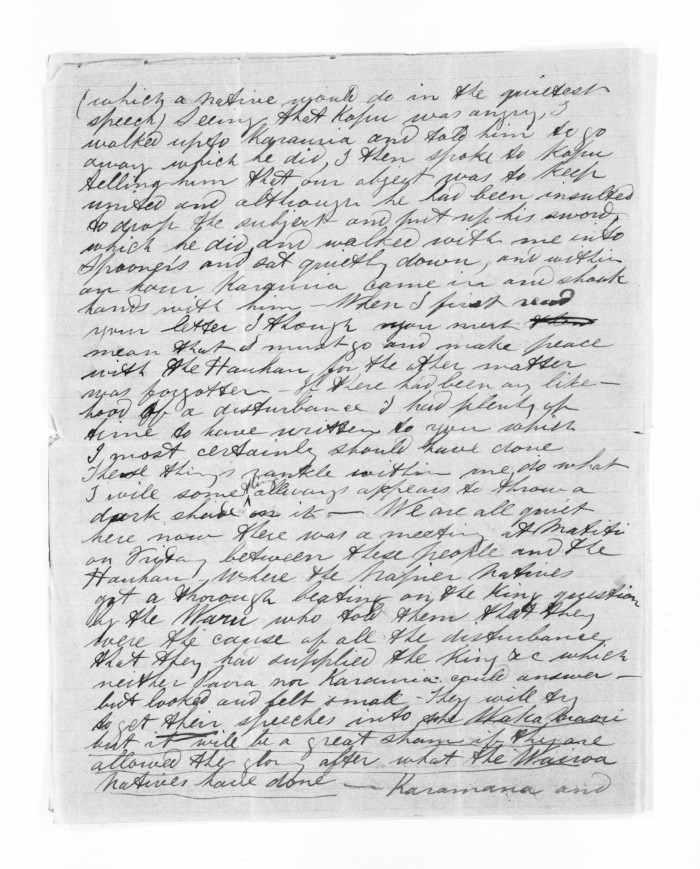 (which a native would do in the quietest
speech) Seeing that Kopu was angry, I
walked up to Karauria and told him to go
away which he did, I then spoke to Kopu
telling him that our object was to keep
united and although he had been insulted
to drop the subject and put up his sword,
which he did, and walked with me into
Spooner's and sat quietly down, and within
an hour Karauria came in and shook
hands with him – When I first read
your letter I though you must
mean that I must go and make peace
with the Hauhau, for the other matter
was forgotten – If there had been any like-
hood of a disturbance I had plenty of
time to have written to you which
I most certainly should have done
These things rankle within me, do what
I will some thing allways appears to throw a
dark shade on it – We are all quiet
here now there was a meeting at Matiti
on Friday between these people and the
Hauhau, Where the Napier Natives
got a thorough beating on the King question
by the Waru who told them that they
were the cause of all the disturbance,
that they had supplied the King &c which
neither Paora nor Karauria could answer –
but looked and felt small – They will try
to get their speeches into the Waka Maori
but it will be a great sham if they are
allowed the glory after what the Wairoa
Natives have done – Karamana and